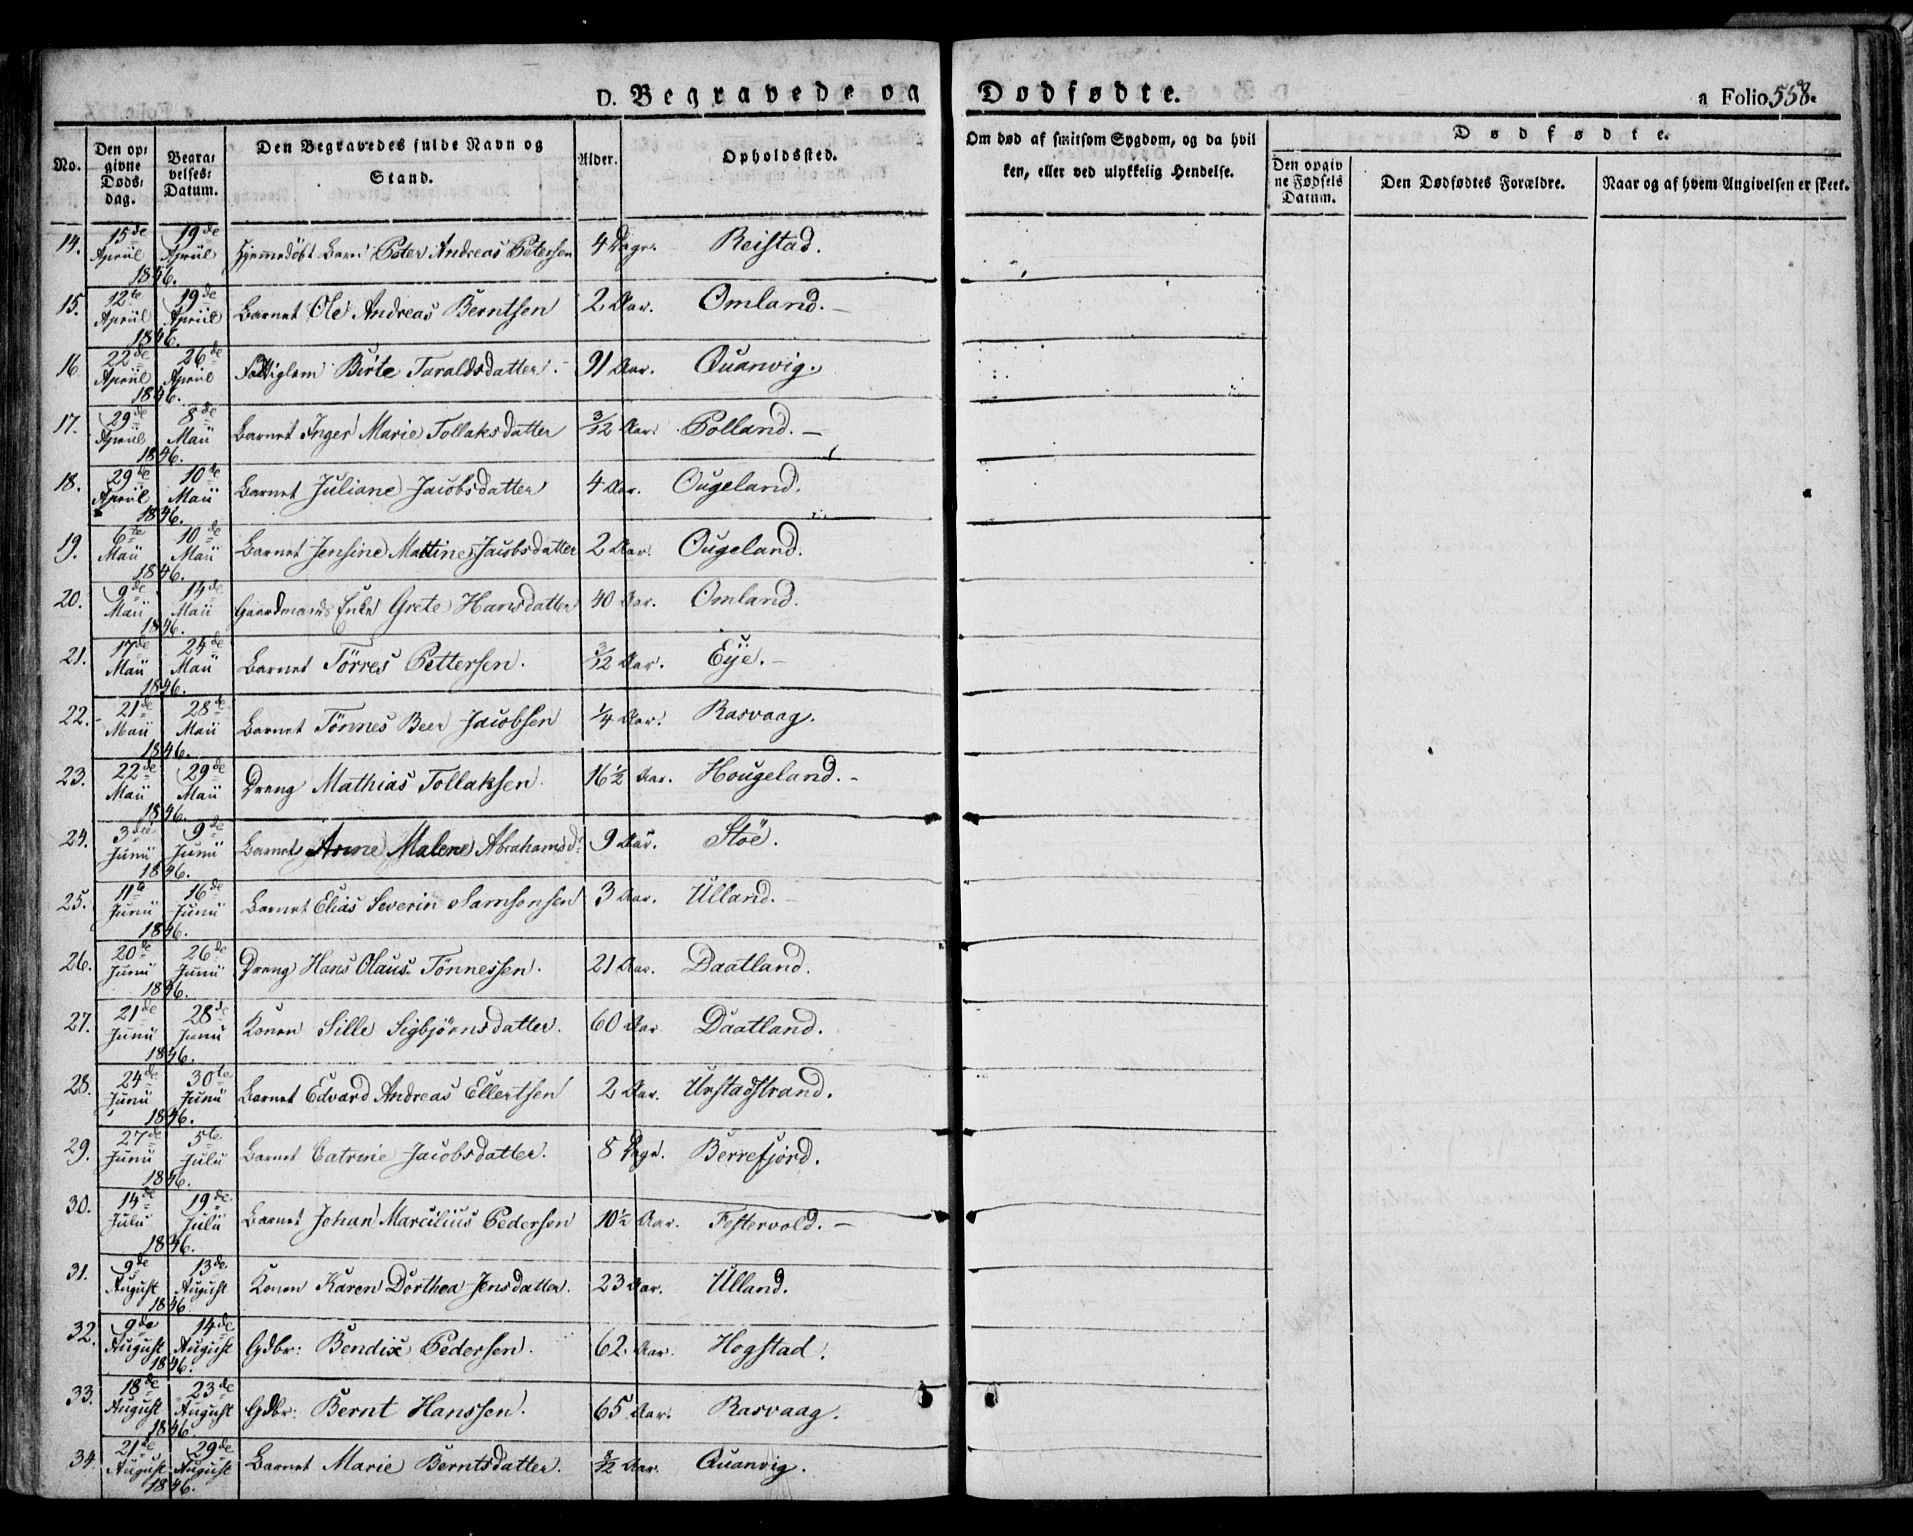 D. Begravede og Dødfødte. a Folio 558.
No. Den opgivne Døds: dag. Begravelses: Datum. Den Begravedes fulde Navn og Stand. Alder. Opholdssted. Om død af smitsom Sygdom, og da hvilken, eller ved ulykkelig Hendelse. Dødfødte. Den opgivne Fødsels Datum. Den Dødfødtes Forældre. Naar og af hvem Angivelsen er skeet.
14. 15de April 19de April 1846. Hjemmedøbt Barn Peter Andreas Petersen 4 Dage. Reistad.
15. 12te April 19de April 1846. Barnet Ole Andreas Berntsen 2 Aar. Omland.
16 22de April 26de April 1846. Fattiglem Birte Taraldsdatter. 91 Aar. Quanvig.
17. 29de April 8de Maii 1846. Barnet Inger Marie Tollaksdatter 3/12 Aar. Polland.
18. 29de April 10de Maii 1846. Barnet Juliane Jacobsdatter 4 Aar. Ougeland.
19. 6te Maii 10de Maii 1846. Barnet Jensine Mattine Jacobsdatter 2 Aar. Ougeland.
20. 9de Maii 14de Maii 1846. Gaardmands Enke Grete Hansdatter 40 Aar. Omland.
21. 17de Maii 24de Maii 1846. Barnet Törres Pettersen. 3/12 Aar. Eije.
22. 21de Maii 28de Maii 1846. Barnet Tönnes Beer Jacobsen 1/4 Aar. Rasvaag.
23. 22de Maii 29de Maii 1846. Dreng Mathias Tollaksen. 16 1/2 Aar. Hougeland.
24. 3die Junii 9de Junii 1846. Barnet Anne Malene Abrahamsdr 9 Aar. Stöe.
25. 11te Junii 16de Junii 1846. Barnet Elias Severin Samsonsen 3 Aar. Ulland.
26. 20de Junii 26de Junii 1846. Dreng Hans Olaus Tönnessen. 21 Aar. Daatland.
27. 21de Junii 28de Junii 1846. Konen Sille Sigbjörnsdatter. 60 Aar Daatland.
28. 24de Junii 30te Junii 1846. Barnet Edvard Andreas Ellertsen 2 Aar. Urstadstrand.
29. 27de Junii 5te Julii 1846. Barnet Catrine Jacobsdatter. 8 Dage. Berrefjord.
30. 14de Julii 19de Julii 1846. Barnet Johan Marcilius Pedersen 10 1/2 Aar. Festervold.
31. 9de August 13de August 1846 Konen Karen Dorthea Jensdatter. 23 Aar. Ulland.
32. 9de August 14de August 1846. Gdbr: Bendix Pedersen. 62 Aar. Hogstad.
33. 18de August 23de August 1846. Gdbr: Bernt Hanssen. 65 Aar. Rasvaag.
34. 21de August 29de August 1846. Barnet Marie Berntsdatter. 8/12 Aar. Quanvig.